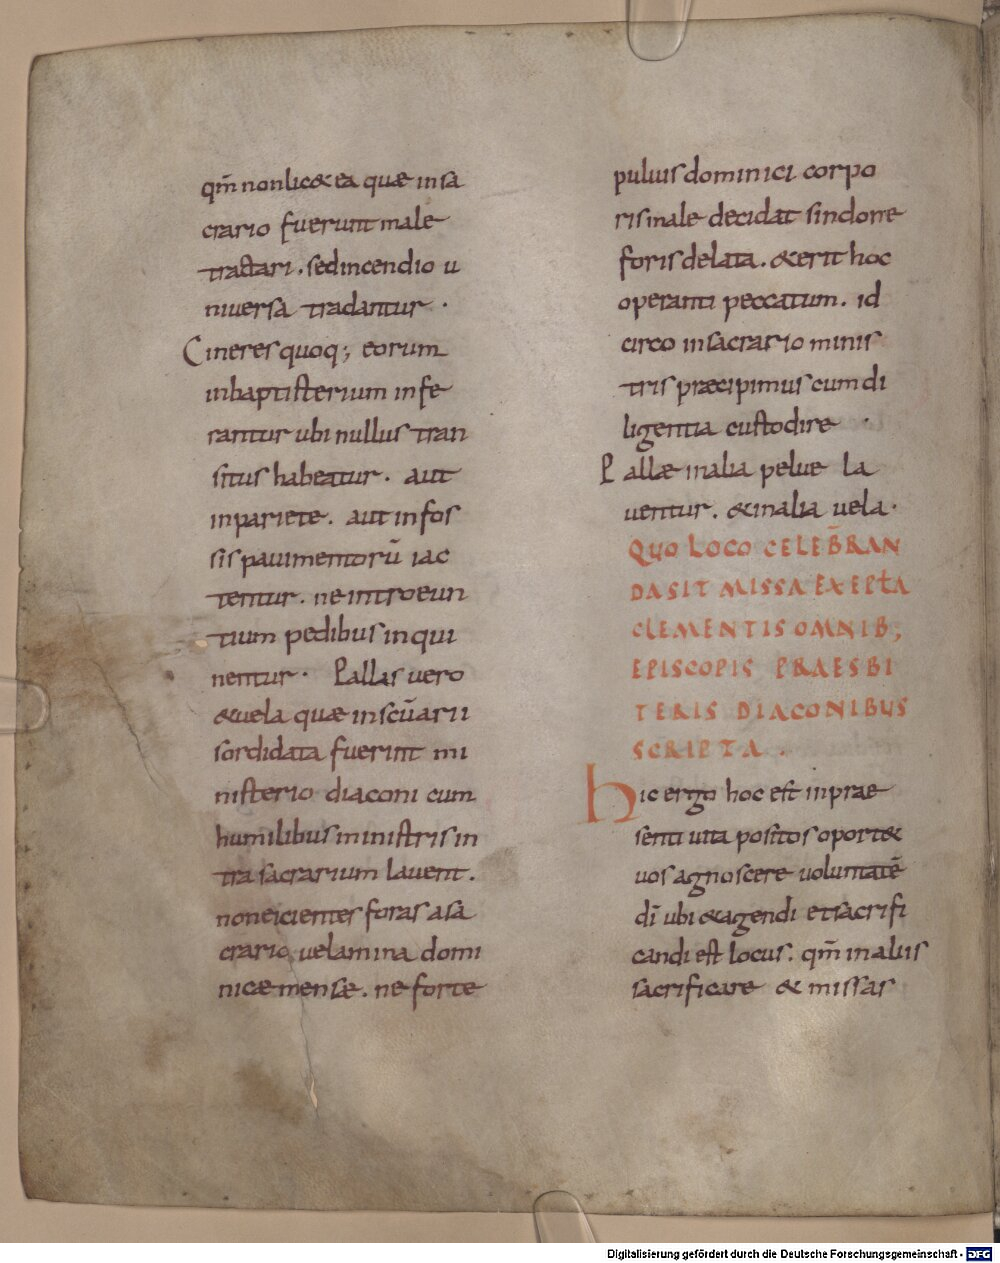 qm̄ non lic& ea quæ in sa
crario fuerunt male
tractari . sed incendio u
niuersa tradantur .
Cineres quoq; eorum
in baptisterium infe
rantur ubi nullus tran
situs habeatur . aut
in pariete . aut in fos
sis pauimentorū iac
tentur . ne introeun
tium pedibus inqui
nentur . Pallas uero
& uela quæ in scūarii
sordidata fuerint mi
nisterio diaconi cum
humilibus ministris in
tra sacrarium lauent .
non eicientes foras a sa
crario uelamina domi
nicæ mensæ . ne forte
puluis dominici corpo
ris male decidat sindone
foris delata . & erit hoc
operanti peccatum . id
circo in sacrario minis
tris præcipimus cum di
ligentia custodire .
Pallæ in alia pelue la
uentur . & in alia uela .
QUO LOCO CELEB̄RAN
DA SIT MISSA EX EPƚA
CLEMENTIS OMNIB;
EPISCOPIS PRAESBI
TERIS DIACONIBUS
SCRIPTA .
Hic ergo hoc est in prae
senti uita positos oport&
uos agnoscere uoluntatē
dī ubi & agendi et sacrifi
candi est locus . qm̄ in aliis
sacrificare & missas
Digitalisierung gefördert durch die Deutsche Forschungsgemeinschaft - DFG